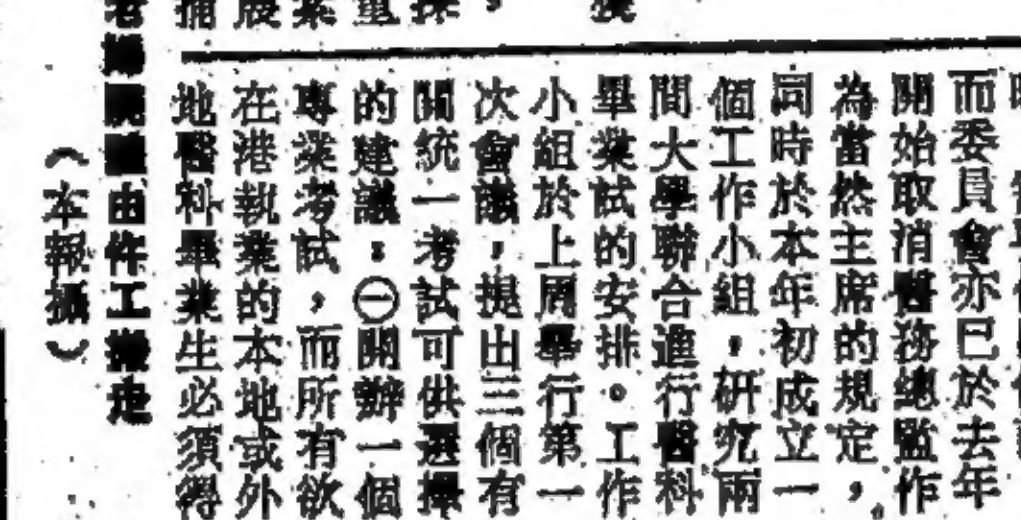 而委員會亦已於去年
開始取消醫務總監作
為當然主席的規定，
同時於本年初成立一
個工作小組，研究兩
間大學聯合進行醫科
畢業試的安排。工作
小組於上周舉行第一
次會議，提出三個有
關統一考試可供選擇
的建議：㊀開辦一個
專業考試，而所有欲
在港執業的本地或外
地醫科畢業生必須得
由仵工搬走
（本報攝）